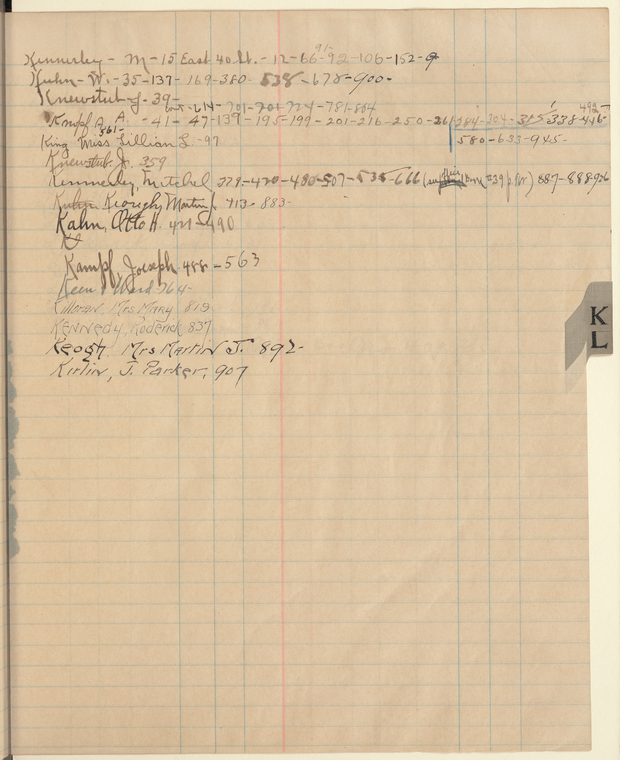 Kennerley - M - 15 East 40 St. - 12-66-92-106-152-
91-
Kuhn - W. - 35-137-169-380- 538 -678-900-
Knewstub-J-39-
614 - 701-701-724-781-804
Kampf A. A. - 41- 47-139-195-199-201-216-250-261-284-304-315-338-446-
492-
361-
King Miss Lillian L. -97
580-633-945-
Knewstub, J. 359
Kennerley, Mitchel 279-470-480-507-535-666 887-888-
Keough, Martin J. 713-883-
Kahn, Otto H. 490
K
Kampf, Joeseph 488-563
Keen & Ward-764-
Killoran, Mrs Mary 819
Kennedy, Roderick 837
Keogh, Mrs Martin J. 892-
Kirlin, J. Parker, 907
K
L